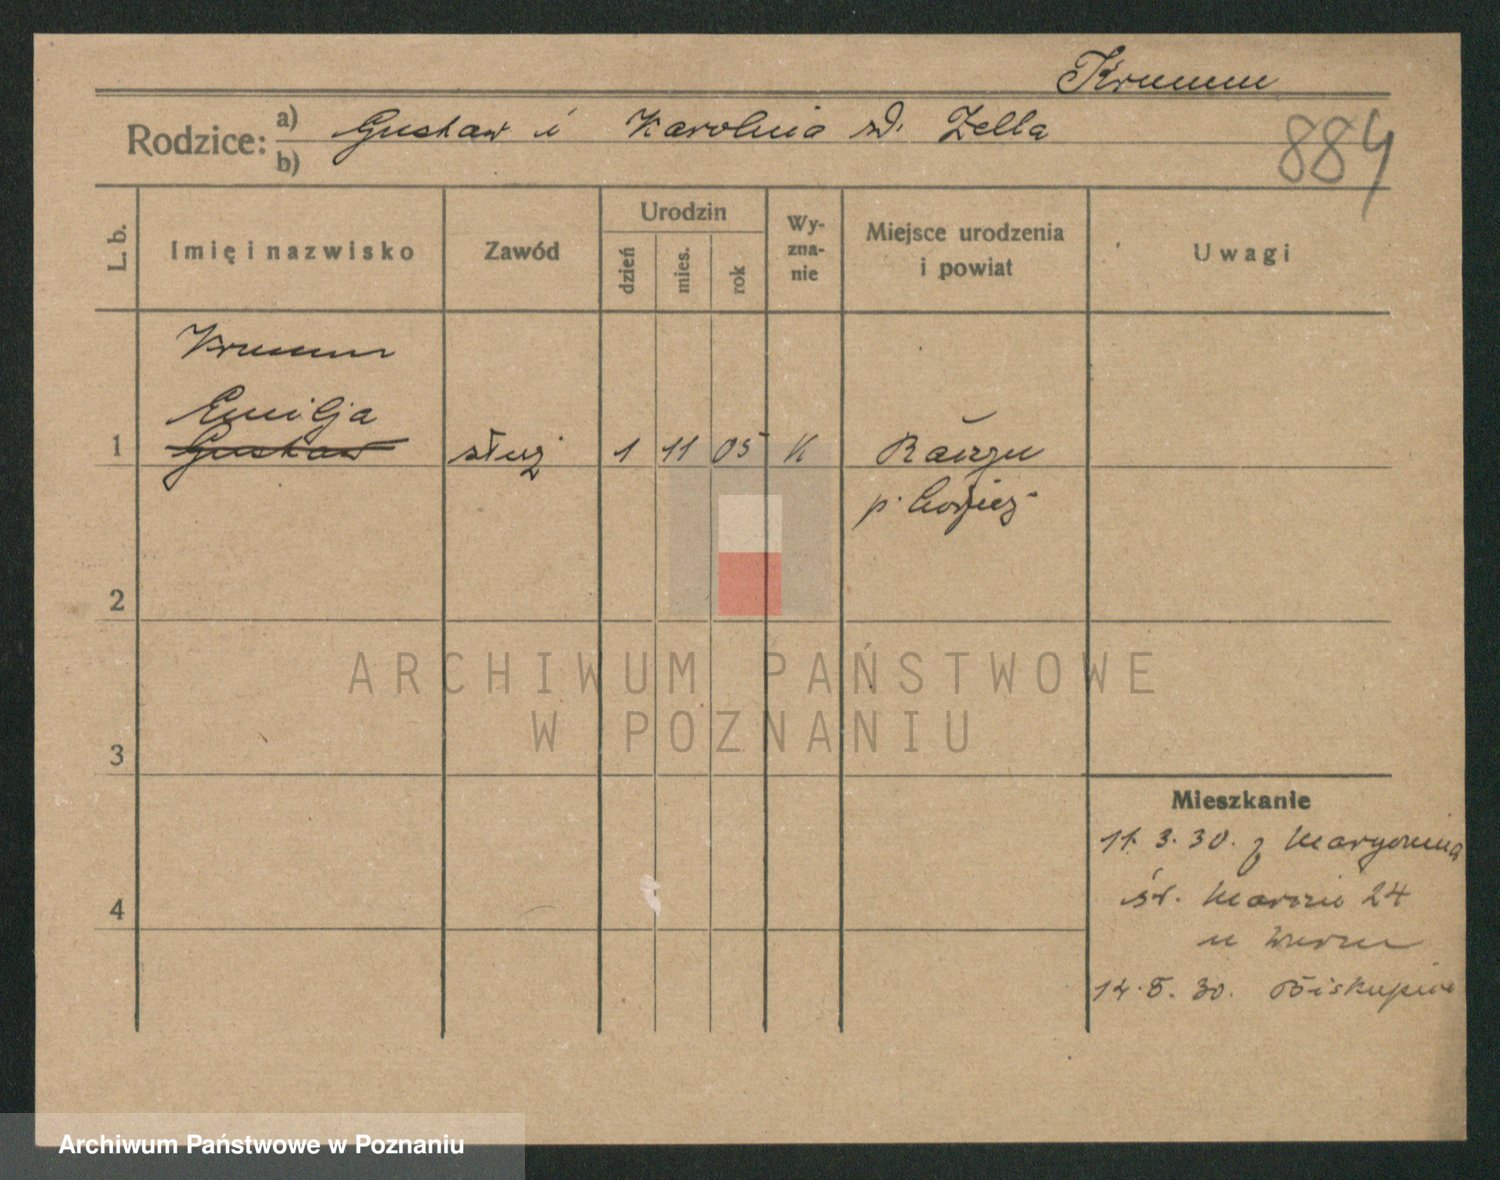 Krumm
Rodzice: a) Gustaw i Karolina d. Zella
b)
884
L. b.
Imię i nazwisko
Zawód
Urodzin
dzień
mies.
rok
Wy-
zna-
nie
Miejsce urodzenia
i powiat
Uwagi
Krumm
Emilja
1 Gustaw służ 1 11 05 K
p.
2
3
4
Mieszkanie
11. 3. 30. z Margonina
św. Marcin 24
u
14. 5. 30. Biskupice
ARCHIWUM PAŃSTWOWE
W POZNANIU
Archiwum Państwowe w Poznaniu